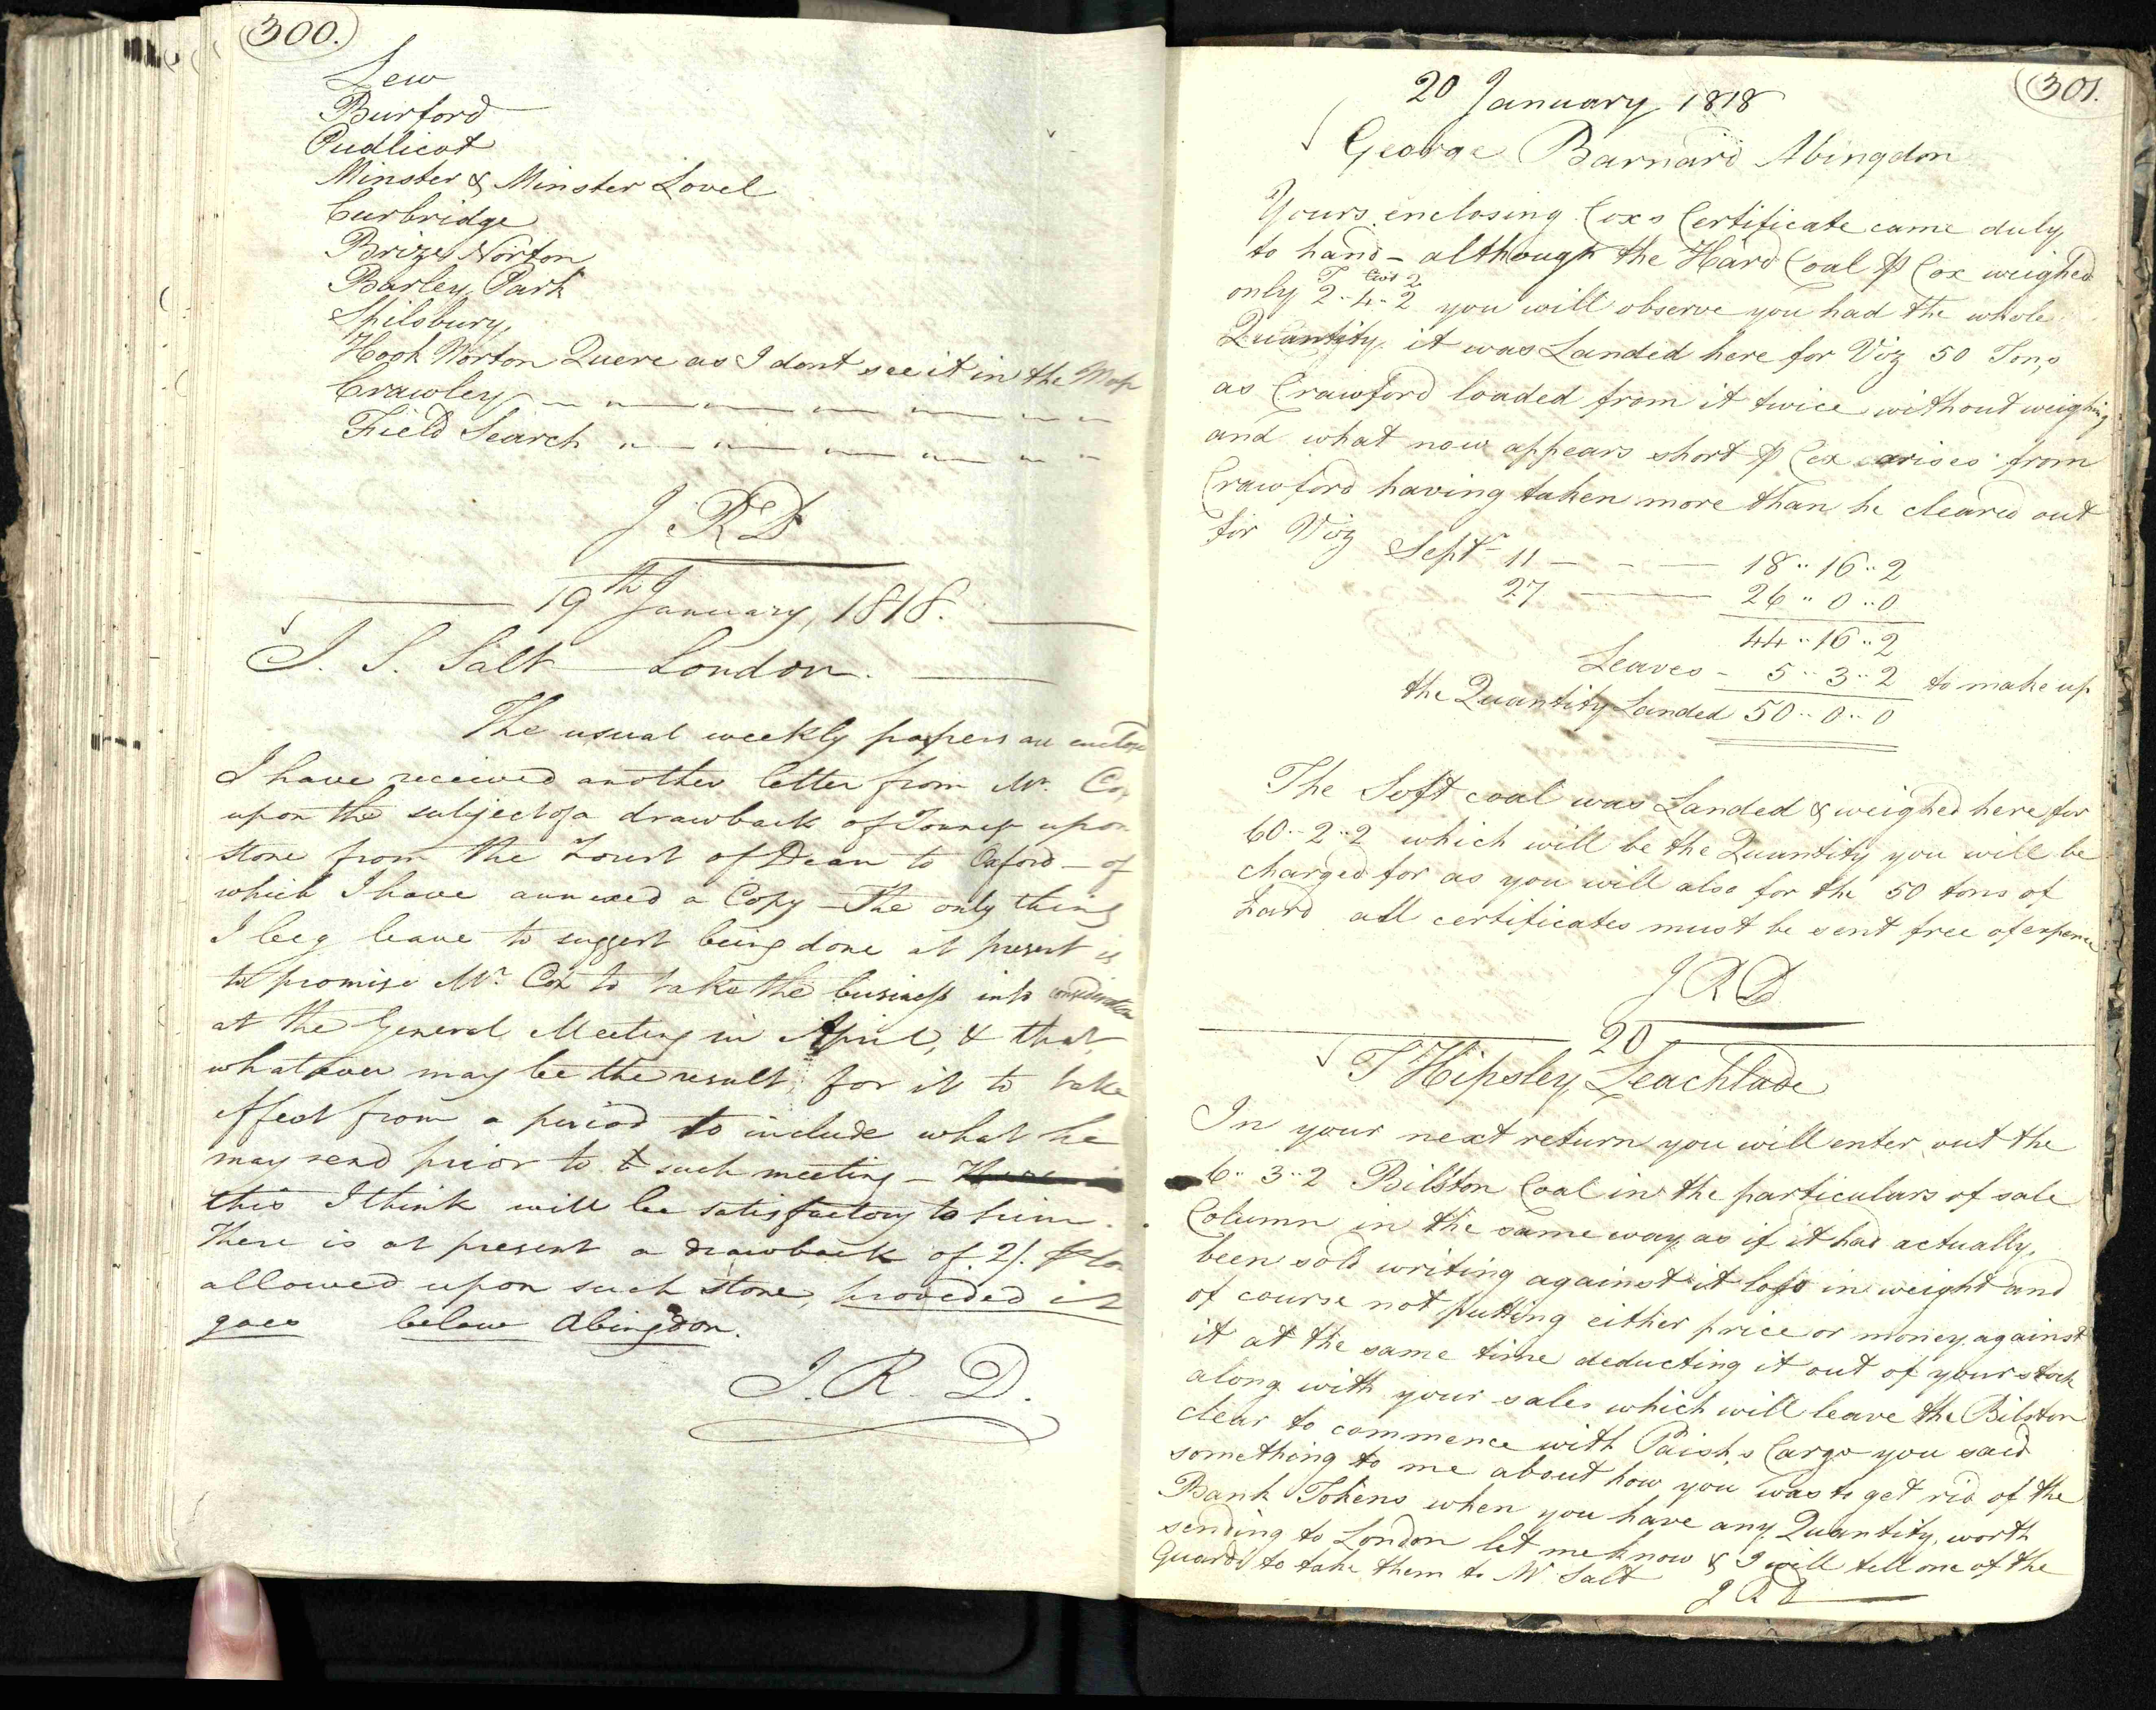 300.
Lew
Burford
Pudlicot
Minster & Minster Lovel
Curbridge
Brizes Norton
Barley Park
Spilsbury,
Hook Norton Quere as I dont see it in the Map
Crawley — " — " — " — " — " —
Field Search " — " — " — " — " —
J R D
19th January, 1818.
J. S. Salt London.
The usual weekly papers are enclose
I have received another letter from Mr. Cox
upon the subject of a drawback of Tonnage upon
stone from the Forest of Dean to Oxford - of
which I have annexed a Copy - The only thing
I beg leave to suggest being done at present is
to promise Mr. Cox to take the business into consideration
at the General Meeting in April, & that
whatever may be the result, for it to take
effect from a period to include what he
may send prior to such meeting -
this I think will be satisfactory to him.
There is at present a drawback of 2/. ⅌ to
allowed upon such stone, provided it
goes below Abingdon.
J. R. D.
301.
20 January 1818
George Barnard Abingdon
Yours enclosing Coxs Certificate came duly
to hand - although the Hard Coal ⅌ Cox weighed
T Cwt Q
only 2..4..2 you will observe you had the whole
Quantity it was Landed here for Viz 50 Tons
as Crawford loaded from it twice without weighing
and what now appears short ⅌ Cox arises from
Crawford having taken more than he cleared out
for Viz Septr 11 — - — 18..16..2
27 —— 26..0..0
44..16..2
Leaves - 5..3..2 to make up
the Quantity Landed 50..0..0
The Soft coal was Landed & weighed here for
60..2..2 which will be the Quantity you will be
charged for as you will also for the 50 tons of
hard all certificates must be sent free of expence
J R D
20
T Hipsley Leachlade
In your next return you will enter out the
6..3..2 Bilston Coal in the particulars of sale
Column in the same way as if it had actually
been sold writing against it loss in weight and
of course not putting either price or money against
it at the same time deducting it out of your stock
along with your sales which will leave the Bilston
clear to commence with Paish,s Cargo you said
something to me about how you was to get rid of the
Bank Tokens when you have any Quantity, worth
sending to London let me know & I will tell one of the
Guards to take them to Mr Salt
J R D